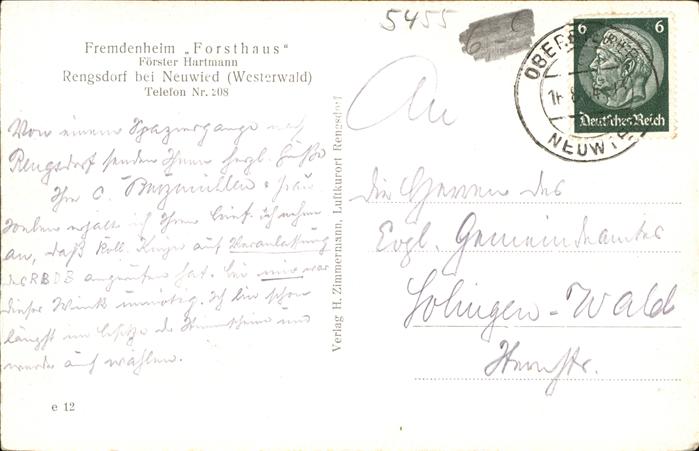 5455
6
6 6
Deutsches Reich
NEUWIED
Fremdenheim „Forsthaus"
Förster Hartmann
Rengsdorf bei Neuwied (Westerwald)
Telefon Nr. 208
Von einem Spaziergange nach
Rengsdorf senden Ihnen herzl. Grüße
Ihr C. u. Frau.
Soeben erhalte ich Ihren Brief. Ich nehme
an, daß Koll. auf Veranlassung
des RBDZ angerufen hat. Bei mir war
dieser Wink unnötig. Ich bin schon
längst im Besitze des und
werde auch wählen.
e 12
Verlag H. Zimmermann, Luftkurort Rengsdorf
An
die Herren des
Evgl. Gemeindeamtes
Solingen-Wald